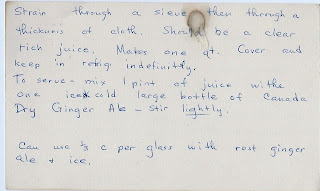 Strain through a sieve then through a
thickness of cloth. Should be a clear
rich juice. Makes one qt. Cover and
keep in refrig indefinitly.
To serve - mix 1 pint of juice withe
one ice cold large bottle of Canada
Dry Ginger Ale - Stir lightly.
Can use ⅓ c per glass with rest ginger
ale + ice.